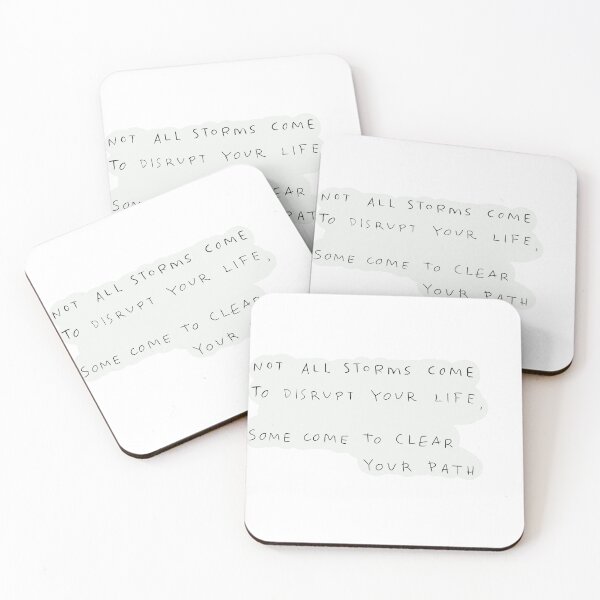 NOT ALL STORMS COME
TO DISRUPT YOUR LIFE
NOT ALL STORMS COME
TO DISRUPT YOUR LIFE,
SOME COME TO CLEAR
YOUR PATH
NOT ALL STORMS COME
TO DISRUPT YOUR LIFE,
SOME COME TO CLEAR
YOUR
NOT ALL STORMS COME
TO DISRUPT YOUR LIFE,
SOME COME TO CLEAR
YOUR PATH